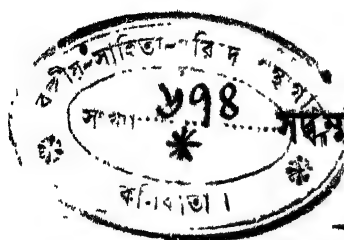 বঙ্গীয়-সাহিত্য-পরিষদ গ্রন্থাগার
সংখ্যা ৬৭৪
কলিকাতা।